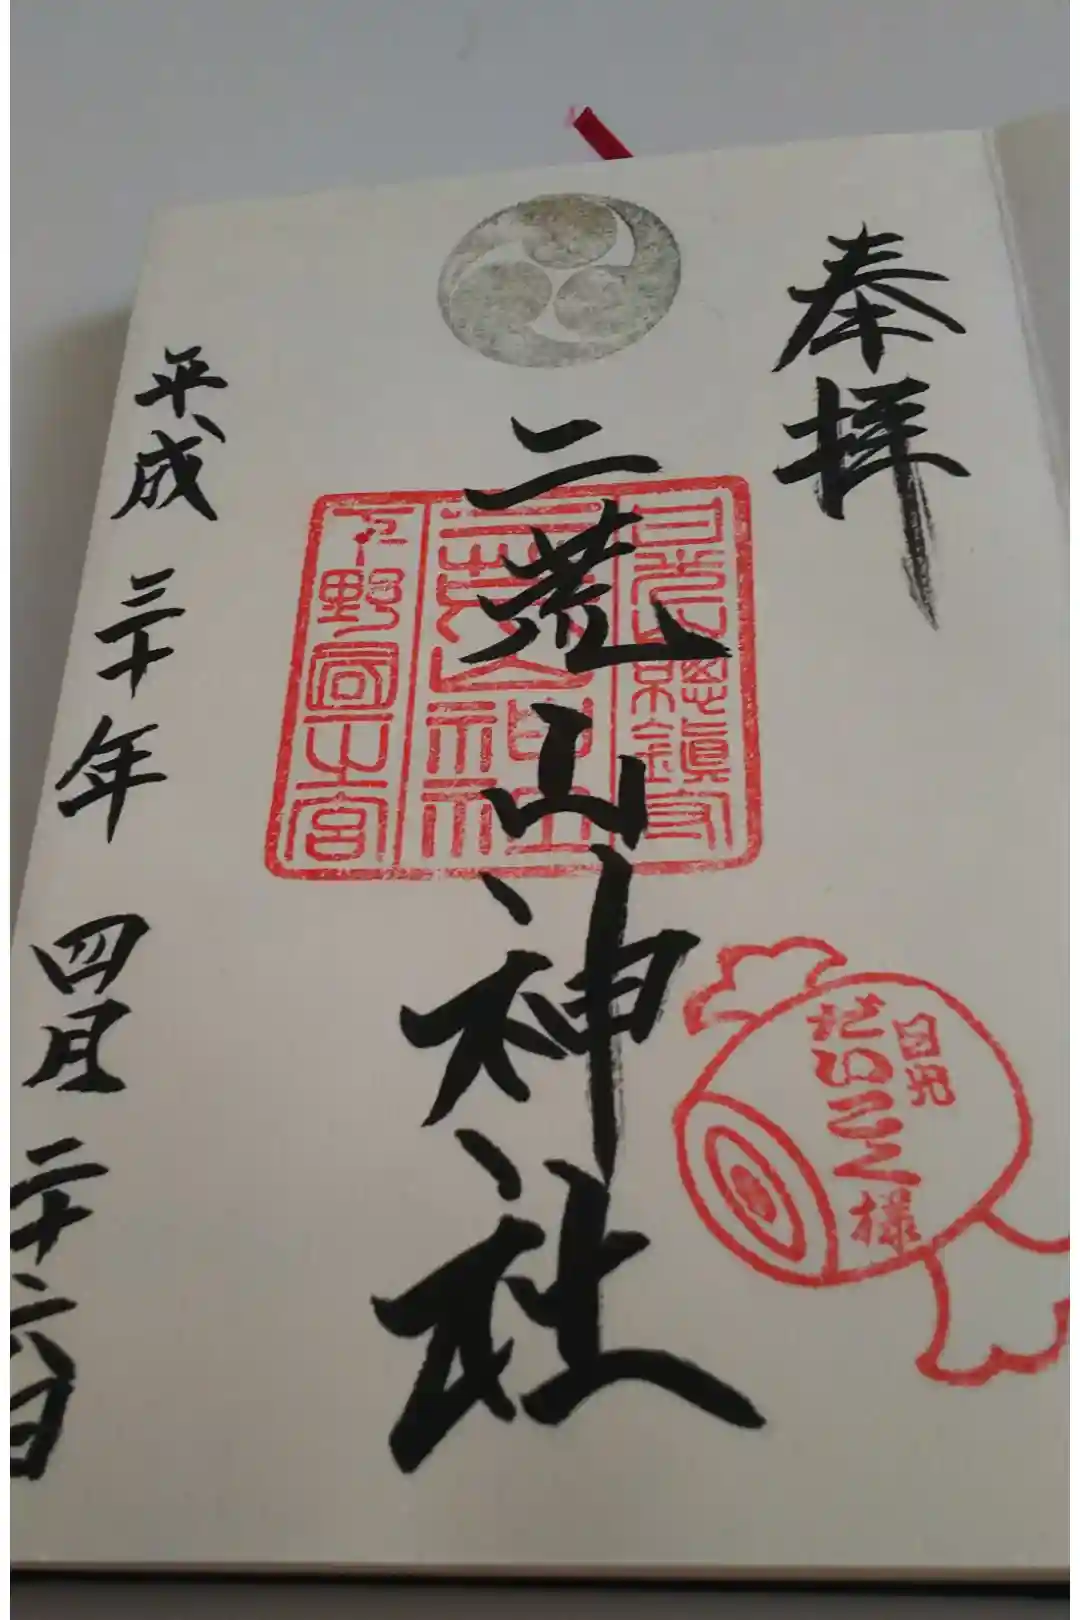 奉拝
日光総鎮守
二荒山神社
下野国一之宮
二荒山神社
日光
だいこく様
平成三十年四月二十六日